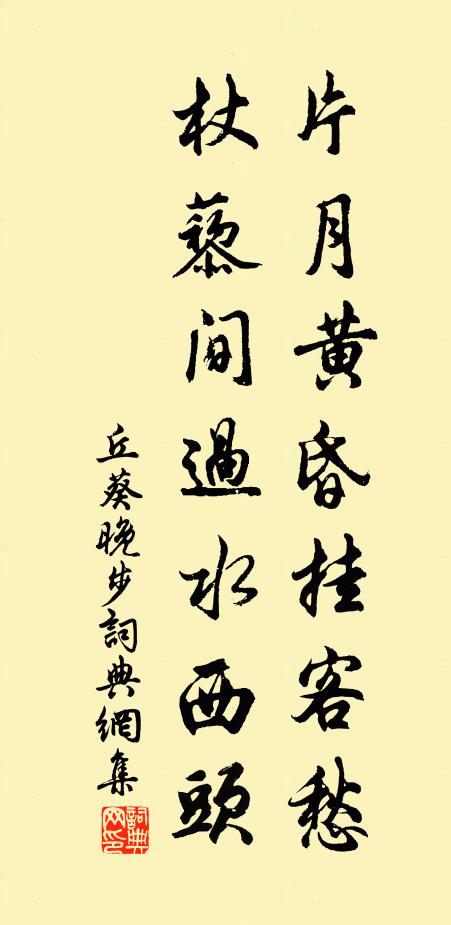 片月黄昏挂客愁
杖藜间過水西頭
丘葵晚步詞典網集
詞典網印